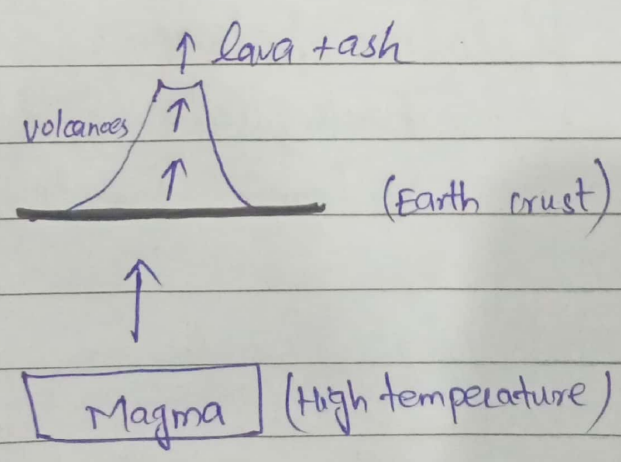 lava + ash
volcanoes
(Earth crust)
Magma (High temperature)